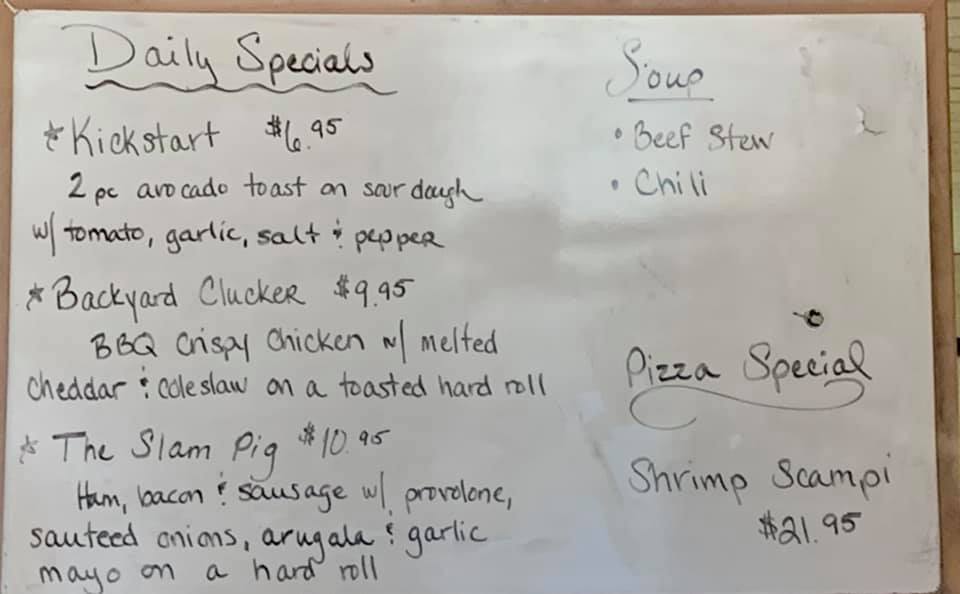 Daily Specials
* Kickstart $6.95
2 pc avocado toast on sour dough
w/ tomato, garlic, salt & pepper
* Backyard Clucker $9.95
BBQ Crispy Chicken w/ melted
cheddar & coleslaw on a toasted hard roll
* The Slam Pig $10.95
Ham, bacon & sausage w/ provolone,
sauteed onions, arugala & garlic
mayo on a hard roll
Soup
• Beef Stew
• Chili
Pizza Special
Shrimp Scampi
$21.95